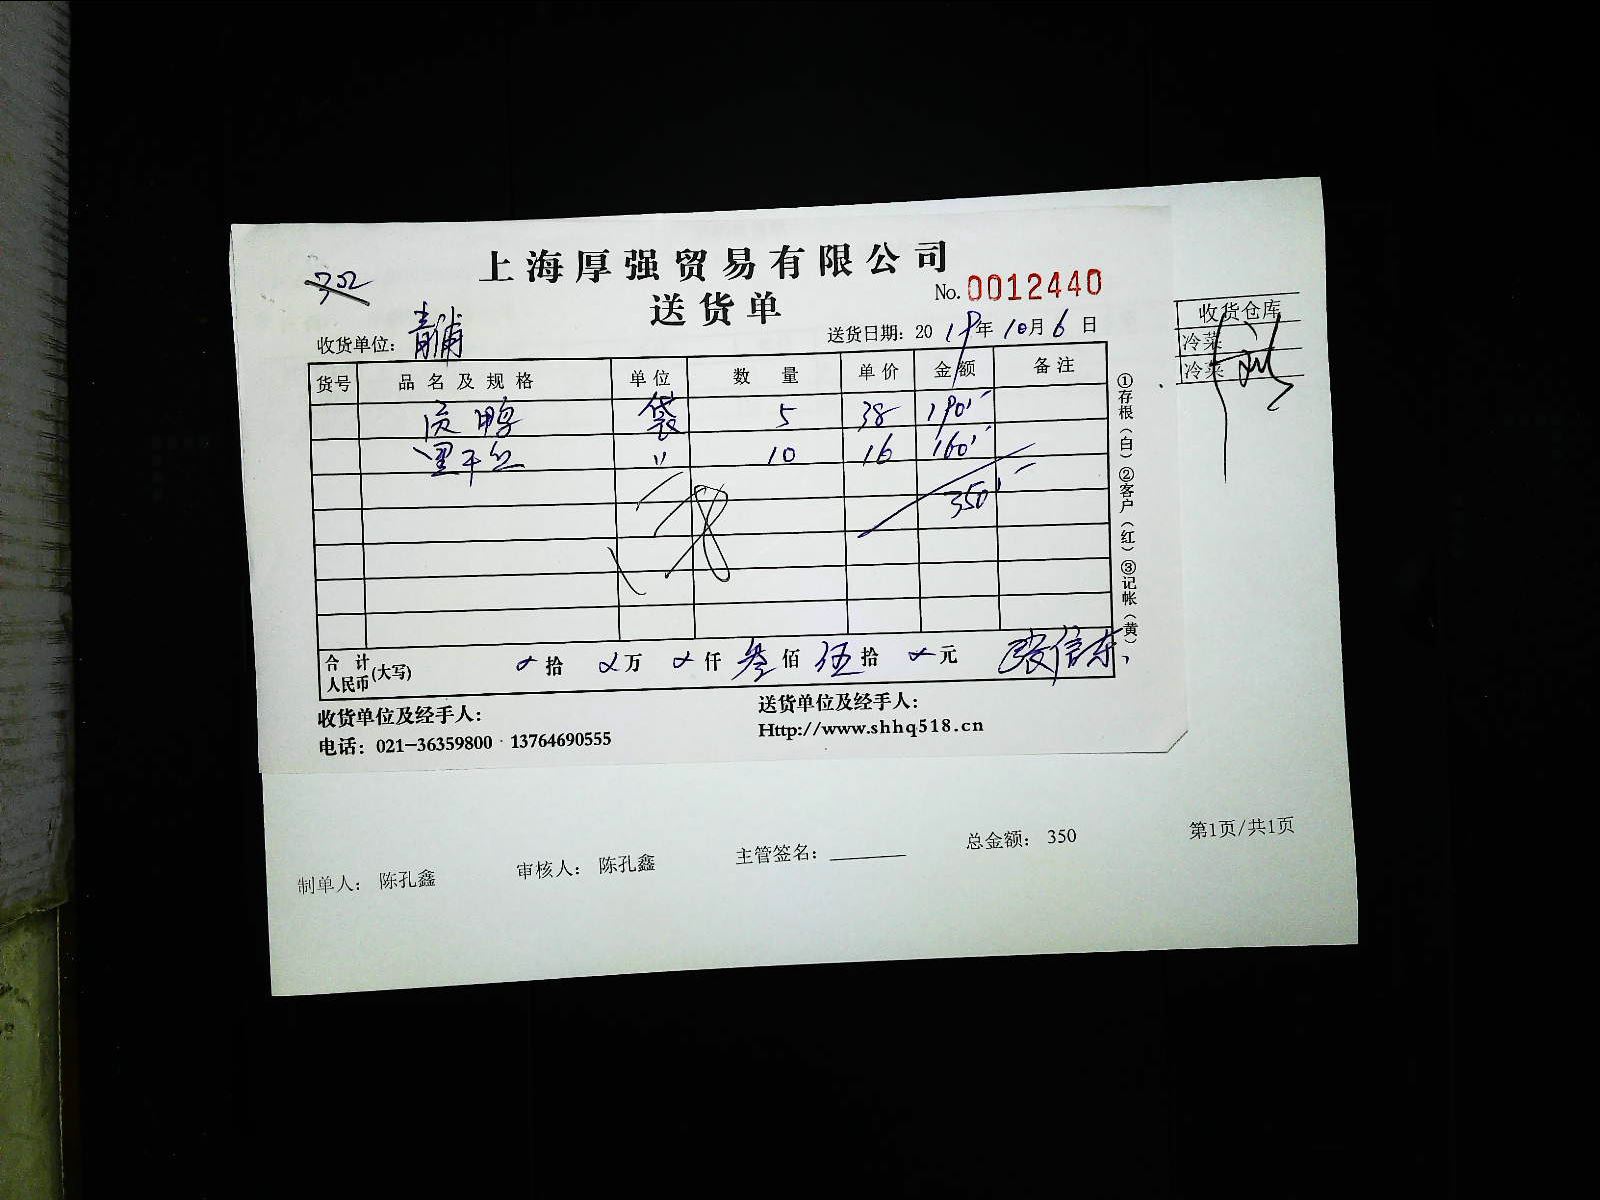 上海厚强贸易有限公司
送货单
No. 0012440
收货单位: 青浦
送货日期: 2019年10月6日
货号 品名及规格 单位 数量 单价 金额 备注
鸭 袋 5 38 190
干丝 〃 10 16 160
350
合计人民币(大写) 拾 万 仟 叁佰 伍拾 元 张信东
收货单位及经手人:
送货单位及经手人:
电话: 021-36359800 13764690555
Http://www.shhq518.cn
①存根(白)②客户(红)③记帐(黄)
收货仓库
冷菜
冷菜
制单人: 陈孔鑫
审核人: 陈孔鑫
主管签名:
总金额: 350
第1页/共1页